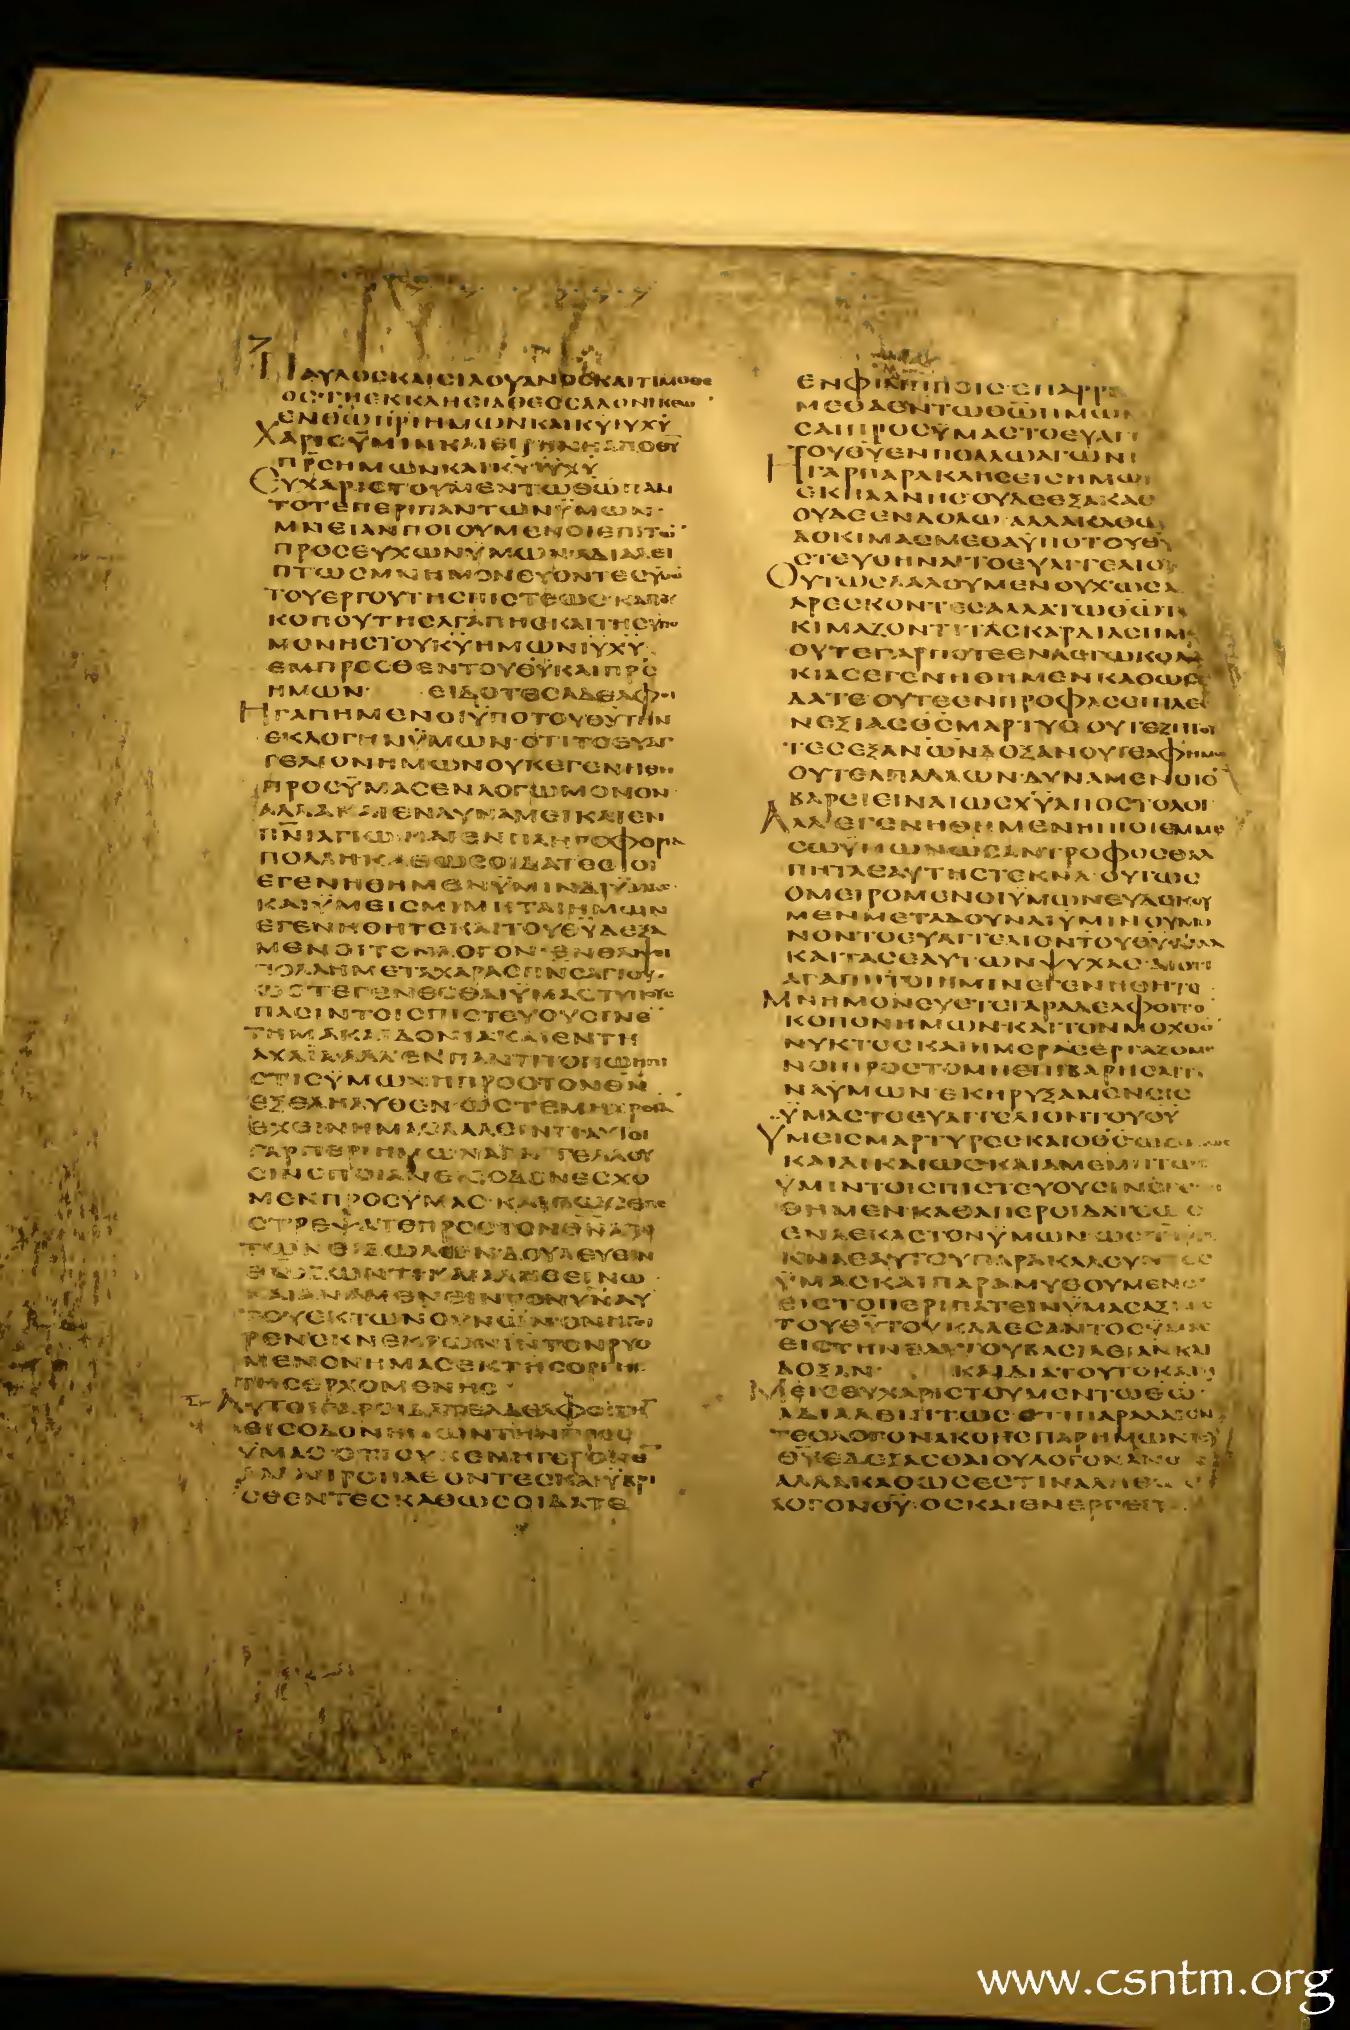 ΠΑΥΛΟΣΚΑΙΣΙΛΟΥΑΝΟΣΚΑΙΤΙΜΟΘΕ
ΟΣ·ΤΗΕΚΚΛΗΣΙΑΘΕΣΣΑΛΟΝΙΚΕΩ
ΕΝΘΩΠΡΙΗΜΩΝΚΑΙΚΥΙΥΧΥ
ΧΑΡΙΣΫΜΙΝΚΑΙΕΙΡΗΝΗΑΠΟΘΥ
ΠΡΣΗΜΩΝΚΑΙΚΥΙΥΧΥ
ΕΥΧΑΡΙΣΤΟΥΜΕΝΤΩΘΩΠΑΝ
ΤΟΤΕΠΕΡΙΠΑΝΤΩΝΫΜΩΝ·
ΜΝΕΙΑΝΠΟΙΟΥΜΕΝΟΙΕΠΙΤΩ
ΠΡΟΣΕΥΧΩΝΫΜΩΝ·ΑΔΙΑΛΕΙ
ΠΤΩΣΜΝΗΜΟΝΕΥΟΝΤΕΣΫΜΩ
ΤΟΥΕΡΓΟΥΤΗΣΠΙΣΤΕΩΣ·ΚΑΙΤΟΥ
ΚΟΠΟΥΤΗΣΑΓΑΠΗΣΚΑΙΤΗΣΫΠΟ
ΜΟΝΗΣΤΟΥΚΥΗΜΩΝΙΥΧΥ·
ΕΜΠΡΟΣΘΕΝΤΟΥΘΥΚΑΙΠΡΣ
ΗΜΩΝ· ΕΙΔΟΤΕΣΑΔΕΛΦΟΙ
ΗΓΑΠΗΜΕΝΟΙΫΠΟΤΟΥΘΥΤΗΝ
ΕΚΛΟΓΗΝΫΜΩΝ·ΟΤΙΤΟΕΥΑΓ
ΓΕΛΙΟΝΗΜΩΝΟΥΚΕΓΕΝΗΘΗ
ΠΡΟΣΫΜΑΣΕΝΛΟΓΩΜΟΝΟΝ
ΑΛΛΑΚΑΙΕΝΔΥΝΑΜΕΙΚΑΙΕΝ
ΠΝΙΑΓΙΩ·ΚΑΙΕΝΠΛΗΡΟΦΟΡΙΑ
ΠΟΛΛΗΚΑΘΩΣΟΙΔΑΤΕΟΙΟΙ
ΕΓΕΝΗΘΗΜΕΝΫΜΙΝΔΙΫΜΑΣ·
ΚΑΙΫΜΕΙΣΜΙΜΗΤΑΙΗΜΩΝ
ΕΓΕΝΗΘΗΤΕΚΑΙΤΟΥΚΥΔΕΞΑ
ΜΕΝΟΙΤΟΝΛΟΓΟΝ·ΕΝΘΛΙΨΕΙ
ΠΟΛΛΗΜΕΤΑΧΑΡΑΣΠΝΣΑΓΙΟΥ·
ΩΣΤΕΓΕΝΕΣΘΑΙΫΜΑΣΤΥΠΟΥΣ
ΠΑΣΙΝΤΟΙΣΠΙΣΤΕΥΟΥΣΙΝΕ
ΤΗΜΑΚΑΙΔΟΝΙΑΚΑΙΕΝΤΗ
ΑΧΑΪΑ·ΑΛΛΕΝΠΑΝΤΙΤΟΠΩΗΠΙ
ΣΤΙΣΫΜΩΝΗΠΡΟΣΤΟΝΘΝ
ΕΞΕΛΗΛΥΘΕΝ·ΩΣΤΕΜΗΧΡΕΙΑ
ΕΧΕΙΝΗΜΑΣΛΑΛΕΙΝΤΙΑΥΤΟΙ
ΓΑΡΠΕΡΙΗΜΩΝΑΠΑΓΓΕΛΛΟΥ
ΣΙΝΟΠΟΙΑΝΕΙΣΟΔΟΝΕΣΧΟ
ΜΕΝΠΡΟΣΫΜΑΣ·ΚΑΙΠΩΣΕΠΕ
ΣΤΡΕΨΑΤΕΠΡΟΣΤΟΝΘΝΑΠΟ
ΤΩΝΕΙΔΩΛΩΝΔΟΥΛΕΥΕΙΝ
ΘΩΖΩΝΤΙΚΑΙΑΛΗΘΕΙΝΩ
ΚΑΙΑΝΑΜΕΝΕΙΝΤΟΝΥΝΑΥ
ΤΟΥΕΚΤΩΝΟΥΝΩΝ·ΟΝΗΓΕΙ
ΡΕΝΕΚΝΕΚΡΩΝΙΝΤΟΝΡΥΟ
ΜΕΝΟΝΗΜΑΣΕΚΤΗΣΟΡΓΗΣ
ΤΗΣΕΡΧΟΜΕΝΗΣ
ΑΥΤΟΙΓΑΡΟΙΔΑΤΕΑΔΕΛΦΟΙΤΗ
ΕΙΣΟΔΟΝΗΜΩΝΤΗΝΠΡΟΣ
ΫΜΑΣ·ΟΤΙΟΥΚΕΝΗΓΕΓΟΝΕ
ΑΛΛΑΠΡΟΠΑΘΟΝΤΕΣΚΑΙΫΒΡΙ
ΣΘΕΝΤΕΣΚΑΘΩΣΟΙΔΑΤΕ
ΕΝΦΙΛΙΠΠΟΙΣΕΠΑΡΡΗ
ΜΕΘΑΕΝΤΩΘΩΗΜΩΝ
ΣΑΙΠΡΟΣΫΜΑΣΤΟΕΥΑΓΓ
ΤΟΥΘΥΕΝΠΟΛΛΩΑΓΩΝΙ
ΗΓΑΡΠΑΡΑΚΛΗΣΕΙΣΗΜΩ
ΕΚΠΛΑΝΗΣΟΥΔΕΕΞΑΚΑΘ
ΟΥΔΕΕΝΔΟΛΩ·ΑΛΛΑΚΑΘΩ
ΔΟΚΙΜΑΣΜΕΘΑΫΠΟΤΟΥΘΥ
ΣΤΕΥΘΗΝΑΙΤΟΕΥΑΓΓΕΛΙΟΝ
ΟΥΤΩΣΛΑΛΟΥΜΕΝΟΥΧΩΣΑ
ΑΡΕΣΚΟΝΤΕΣΑΛΛΑΤΩΘΩΔΟ
ΚΙΜΑΖΟΝΤΙΤΑΣΚΑΡΔΙΑΣΗΜ
ΟΥΤΕΓΑΡΠΟΤΕΕΝΛΟΓΩΚΟΛΑ
ΚΙΑΣΕΓΕΝΗΘΗΜΕΝΚΑΘΩΣΟΙ
ΔΑΤΕ·ΟΥΤΕΕΝΠΡΟΦΑΣΕΙΠΛΕΟ
ΝΕΞΙΑΣΘΣΜΑΡΤΥΣ·ΟΥΤΕΖΗΤΟΥ
ΤΕΣΕΞΑΝΩΝΔΟΞΑΝΟΥΤΕΑΦΗΜΩ
ΟΥΤΕΑΠΑΛΛΩΝ·ΔΥΝΑΜΕΝΟΙΕ
ΒΑΡΕΙΕΙΝΑΙΩΣΧΥΑΠΟΣΤΟΛΟΙ
ΑΛΛΕΓΕΝΗΘΗΜΕΝΗΠΙΟΙΕΜΜΕ
ΣΩΫΜΩΝΩΣΑΝΤΡΟΦΟΣΘΑΛ
ΠΗΤΑΕΑΥΤΗΣΤΕΚΝΑ·ΟΥΤΩΣ
ΟΜΕΙΡΟΜΕΝΟΙΫΜΩΝΕΥΔΟΚΟΥ
ΜΕΝΜΕΤΑΔΟΥΝΑΙΫΜΙΝΟΥΜΟ
ΝΟΝΤΟΕΥΑΓΓΕΛΙΟΝΤΟΥΘΥΑΛΛΑ
ΚΑΙΤΑΣΕΑΥΤΩΝΨΥΧΑΣ·ΔΙΟΤΙ
ΑΓΑΠΗΤΟΙΗΜΙΝΕΓΕΝΗΘΗΤΕ
ΜΝΗΜΟΝΕΥΕΤΕΓΑΡΑΔΕΛΦΟΙΤΟ
ΚΟΠΟΝΗΜΩΝ·ΚΑΙΤΟΝΜΟΧΘΟ
ΝΥΚΤΟΣΚΑΙΗΜΕΡΑΣΕΡΓΑΖΟΜΕ
ΝΟΙΠΡΟΣΤΟΜΗΕΠΙΒΑΡΗΣΑΙΤΙ
ΝΑΫΜΩΝ·ΕΚΗΡΥΞΑΜΕΝΕΙΣ
ΫΜΑΣΤΟΕΥΑΓΓΕΛΙΟΝΤΟΥΘΥ
ΥΜΕΙΣΜΑΡΤΥΡΕΣΚΑΙΟΘΣΩΣ
ΚΑΙΔΙΚΑΙΩΣΚΑΙΑΜΕΜΠΤΩΣ
ΫΜΙΝΤΟΙΣΠΙΣΤΕΥΟΥΣΙΝΕΓΕ
ΘΗΜΕΝ·ΚΑΘΑΠΕΡΟΙΔΑΤΕΩΣ
ΕΝΑΕΚΑΣΤΟΝΫΜΩΝ·ΩΣΠ
ΚΝΑΕΑΥΤΟΥΠΑΡΑΚΑΛΟΥΝΤΕΣ
ΫΜΑΣΚΑΙΠΑΡΑΜΥΘΟΥΜΕΝΟΙ
ΕΙΣΤΟΠΕΡΙΠΑΤΕΙΝΫΜΑΣΑΞΙ
ΤΟΥΘΥΤΟΥΚΑΛΕΣΑΝΤΟΣΫΜΑ
ΕΙΣΤΗΝΕΑΥΤΟΥΒΑΣΙΛΕΙΑΝΚΑΙ
ΔΟΞΑΝ· ΚΑΙΔΙΑΤΟΥΤΟΚΑΙΗ
ΜΕΙΣΕΥΧΑΡΙΣΤΟΥΜΕΝΤΩΘΩ·
ΑΔΙΑΛΕΙΠΤΩΣ·ΟΤΙΠΑΡΑΛΑΒΟΝ
ΤΕΣΛΟΓΟΝΑΚΟΗΣΠΑΡΗΜΩΝΤΟΥ
ΘΥΕΔΕΞΑΣΘΑΙΟΥΛΟΓΟΝΑΝΟ
ΑΛΛΑΚΑΘΩΣΕΣΤΙΝΑΛΗΘ
ΛΟΓΟΝΘΥ·ΟΣΚΑΙΕΝΕΡΓΕΙΤ
www.csntm.org